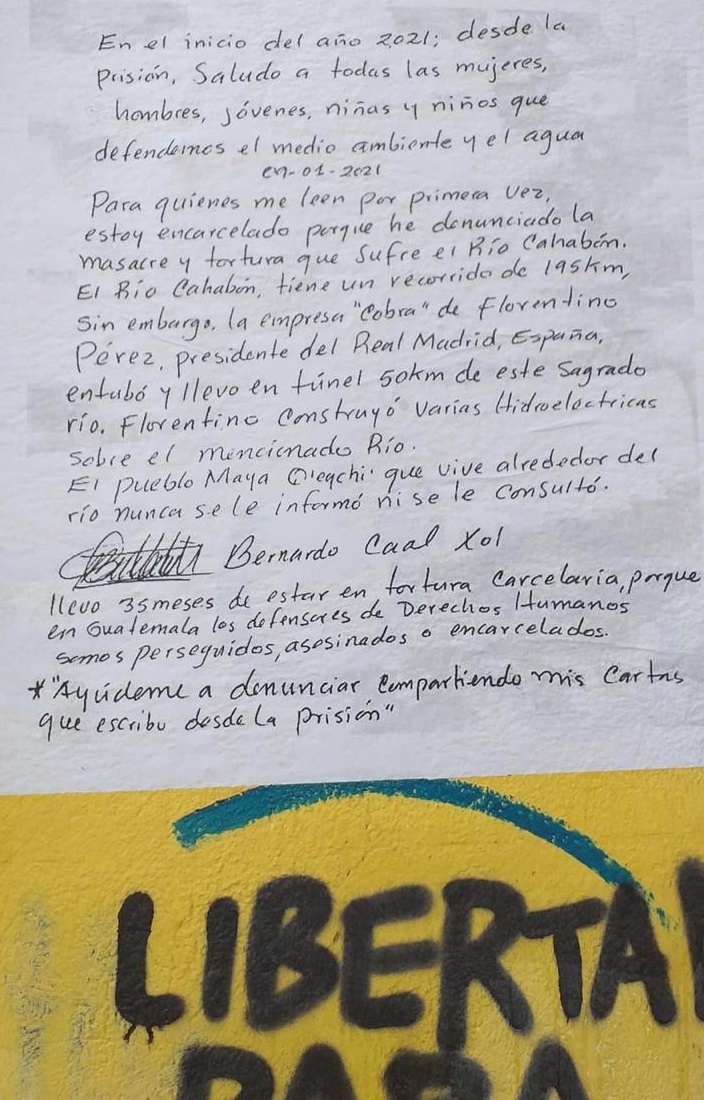 En el inicio del año 2021; desde la
prisión, Saludo a todas las mujeres,
hombres, jóvenes, niñas y niños que
defendemos el medio ambiente y el agua
en-01-2021
Para quienes me leen por primera vez,
estoy encarcelado porque he denunciado la
masacre y tortura que Sufre el Río Cahabón.
El Río Cahabón, tiene un recorrido de 195km,
Sin embargo, la empresa "Cobra" de Florentino
Pérez, presidente del Real Madrid, España,
entubó y llevo en túnel 50km de este Sagrado
río. Florentino Construyó Varias Hidroeléctricas
Sobre el mencionado Río.
El pueblo Maya Q'eqchi' que vive alrededor del
río nunca se le informó ni se le Consultó.
Bernardo Caal Xol
llevo 35meses de estar en tortura Carcelaria, porque
en Guatemala los defensores de Derechos Humanos
somos perseguidos, asesinados o encarcelados.
*"Ayúdeme a denunciar Compartiendo mis Cartas
que escribo desde la prisión"
LIBERTA
PARA